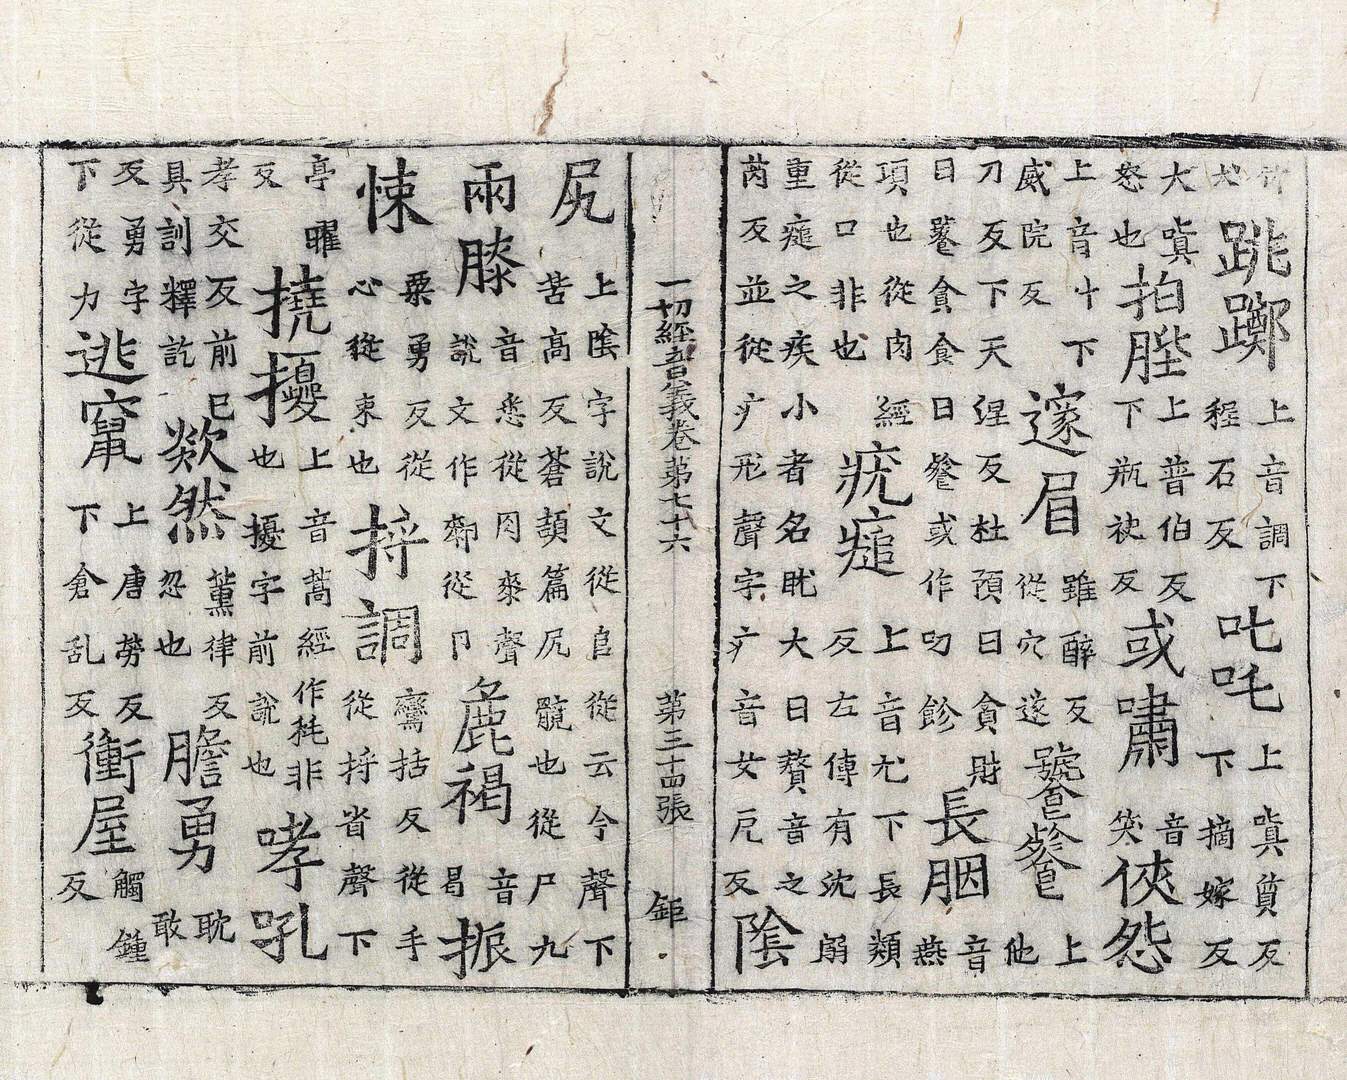 跳躑上音調下程石反叱吒上嗔質反下摘嫁反
大嗔怒也拍髀上普伯反下瓶袂反或嘯音笑俠怨
上音叶下威院反邃眉雖醉反從穴遂號饕餮上他
刀反下天涅反杜預曰貪財曰饕貪食曰餮或作叨飻長胭音燕
項也從肉經從口非也疣瘇上音尤下長類反左傳有沈溺
重瘇之疾小者名肬大曰贅音之芮反並從疒形聲字疒音女戹反陰
一切經音義卷第七十六 第三十四張 鉅
尻上陰字說文從𨸏從云今聲下苦高反蒼頡篇尻髖也從尸九
兩膝音悉從肉桼聲說文作厀從卩麁褐音曷振
悚粟勇反從心從束也捋調鸞括反從手從捋省聲下
亭曜反撓擾上音蒿經作耗非也擾字前說也哮吼
孝交反前已具訓釋訖欻然薰律反忽也膽勇耽敢
反勇字下從力逃竄上唐勞反下倉乱反衝屋觸鍾反